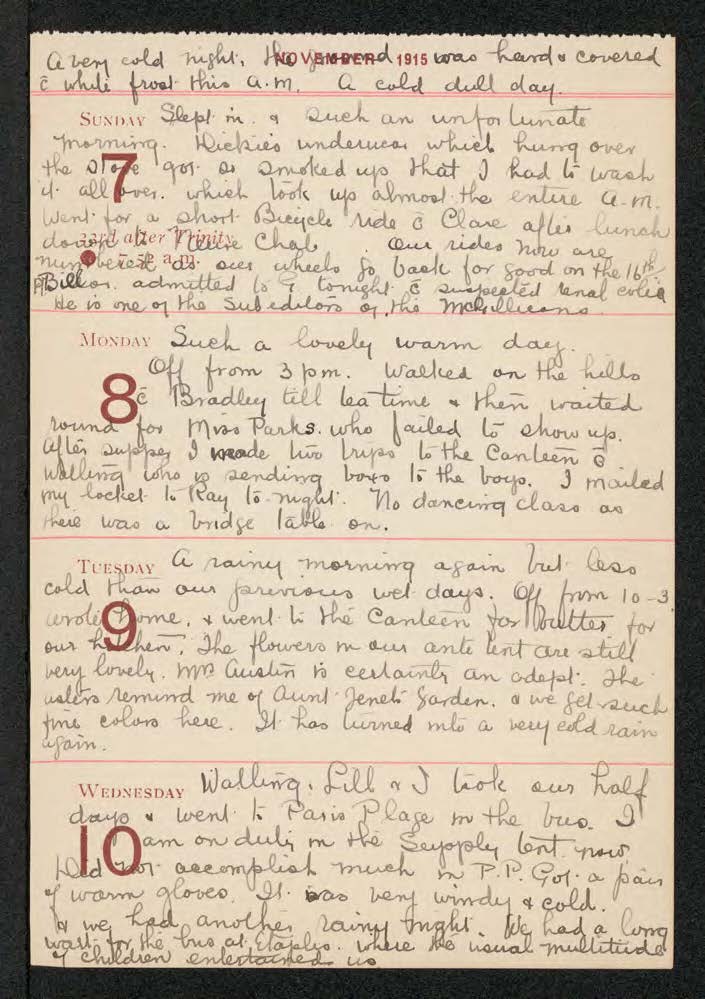 A very cold night. the ground was hard & covered
NOVEMBER 1915
c̄ white frost this a.m. A cold dull day.
SUNDAY Slept in. & such an unfortunate
morning. Dickie's underwear which hung over
the stove got so smoked up that I had to wash
7
it all over. which took up almost the entire a.m.
Went for a short Bicycle ride c̄ Clare after lunch
23rd after Trinity
down to Chal. Our rides now are
7.52 a.m.
numbered as our wheels go back for good on the 16th/
Billion admitted to G tonight c̄ suspected renal colic
He is one of the Sub editors of the McGillicans
MONDAY Such a lovely warm day.
Off from 3 pm. Walked on the hills
8
c̄ Bradley till tea time & then waited
round for Miss Parks. who failed to show up.
After supper I made two trips to the Canteen c̄
Walling who is sending boxes to the boys. I mailed
my locket to Ray to-night. No dancing class as
there was a bridge table on.
TUESDAY A rainy morning again but less
cold than our previous wet days. Off from 10-3.
9
wrote home. & went to the Canteen for butter for
our kitchen. The flowers in our ante tent are still
very lovely. Mrs Austin is certainly an adept. The
asters remind me of Aunt Jenet's Garden. & we get such
fine colors here. It has turned into a very cold rain
again.
WEDNESDAY Walling. Lill & I took our half
days & went to Paris Plage in the bus. I
10
am on duty in the Seupply tent now
Did not accomplish much in P.P. Got a pair
of warm gloves. It was very windy & cold.
& we had another rainy night. We had a long
wait for the bus at Etaples. where the usual multitude
of children entertained us